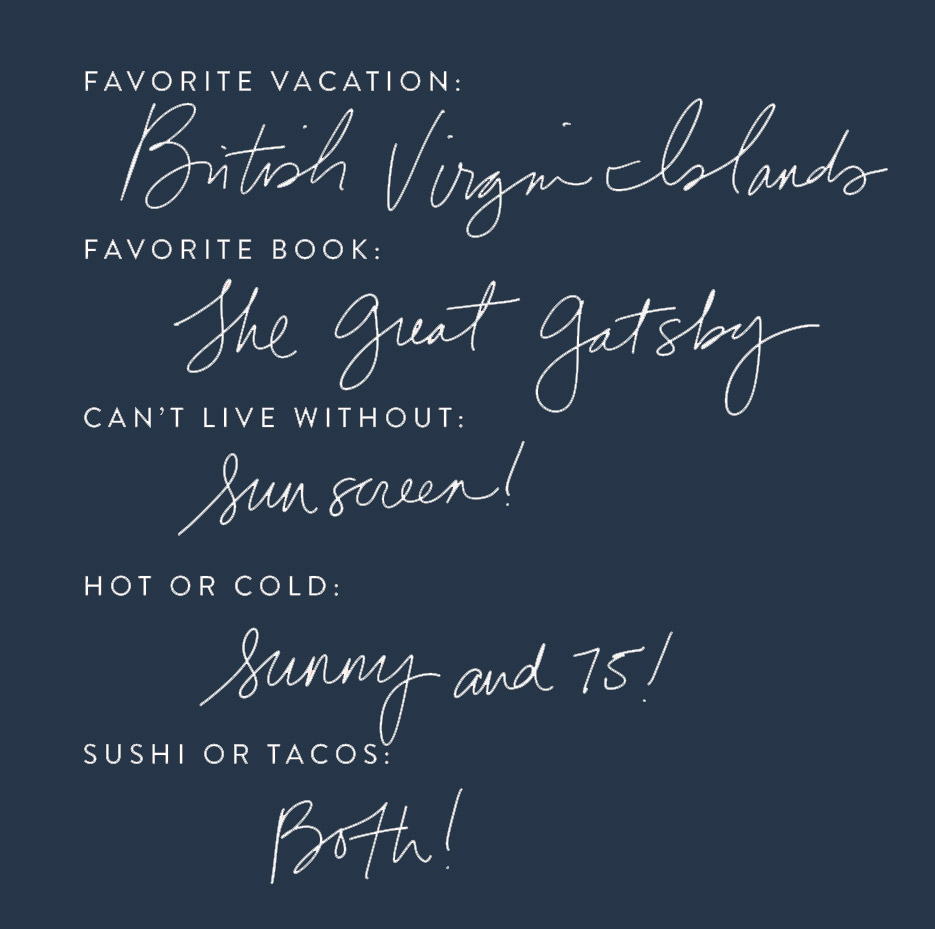 FAVORITE VACATION:
British Virgin Islands
FAVORITE BOOK:
The Great Gatsby
CAN'T LIVE WITHOUT:
Sunscreen!
HOT OR COLD:
Sunny and 75!
SUSHI OR TACOS:
Both!